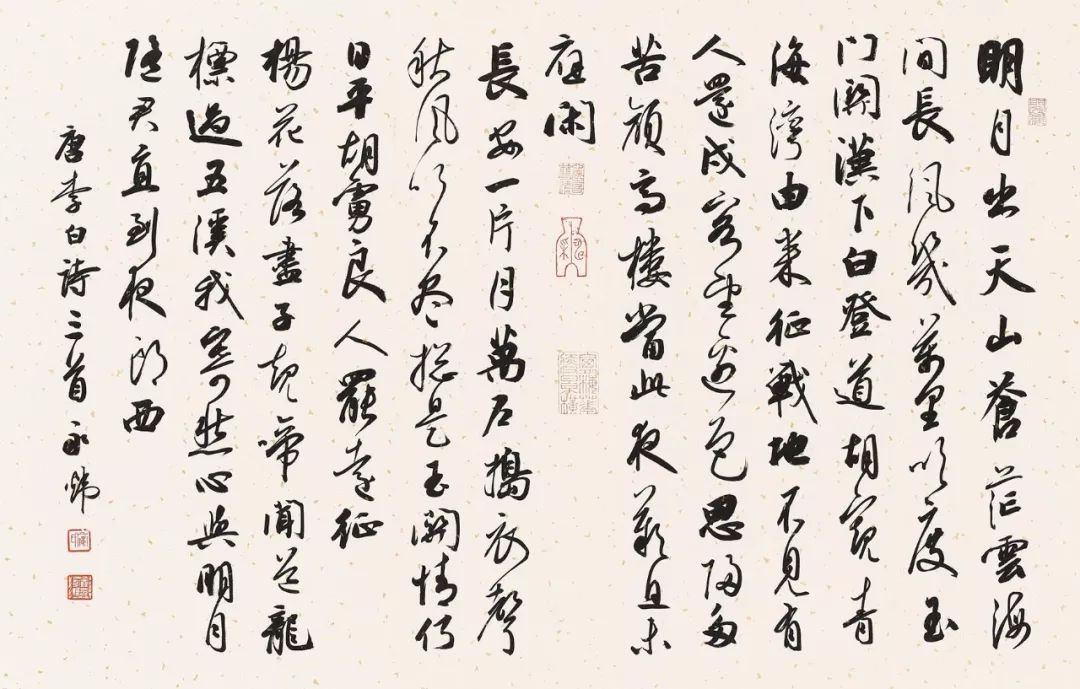 明月出天山蒼茫雲海
间長风幾萬里吹度玉
门關漢下白登道胡窺青
海灣由来征戰地不見有
人還戍客望邊色思歸多
苦顔高樓當此夜歎且未
應閑
長安一片月萬户搗衣聲
秋风吹不尽總是玉關情何
日平胡虜良人罷遠征
楊花落盡子規啼聞道龍
標過五溪我寄愁心與明月
隨君直到夜郎西
唐李白詩三首永